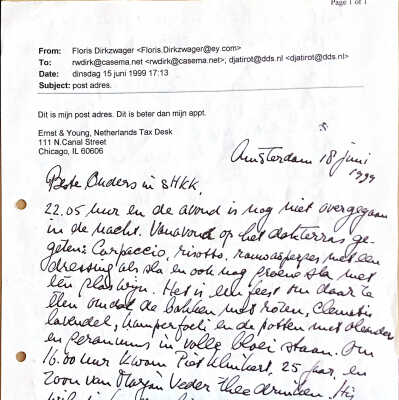 Page 1 of 1
From: Floris Dirkzwager <Floris.Dirkzwager@ey.com>
To: rwdirk@casema.net <rwdirk@casema.net>; djatirot@dds.nl <djatirot@dds.nl>
Date: dinsdag 15 juni 1999 17:13
Subject: post adres.
Dit is mijn post adres. Dit is beter dan mijn appt.
Ernst & Young, Netherlands Tax Desk
111 N.Canal Street
Chicago, IL 60606
Amsterdam 18 juni
1999
Beste Ouders in
22.05 uur en de avond is nog niet overgegaan
in de nacht. Vanavond op het dakterras ge-
geten: Carpaccio, risotto, rauwe asperges met een
dressing als sla en ook nog groene sla met
één glas wijn. Het is een feest om daar te
eten omdat de bakken met rozen, clematis
lavendel, kamperfoelie en de potten met oleander
en geraniums in volle bloei staan. Om
16.00 uur kwam Piet 25 jaar, en
zoon van Marjan Veder thee drinken. Hij